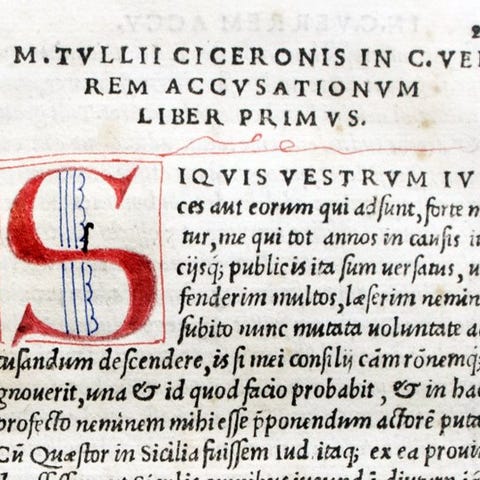 M.TVLLII CICERONIS IN C.VER
REM ACCVSATIONVM
LIBER PRIMVS.
SIQVIS VESTRVM IV
ces aut eorum qui adsunt, forte
tur, me qui tot annos in causis
cijsq; publicis ita sum uersatus,
fenderim multos, læserim nemin
subito nunc mutata uoluntate
cusandum descendere, is si mei consilij cām rōnemq;
gnouerit, una & id quod facio probabit, & in hac
profecto neminem mihi esse p̄ponendum actorē puta
Cū Quæstor in Sicilia fuissem Iud. itaq; ex ea proui